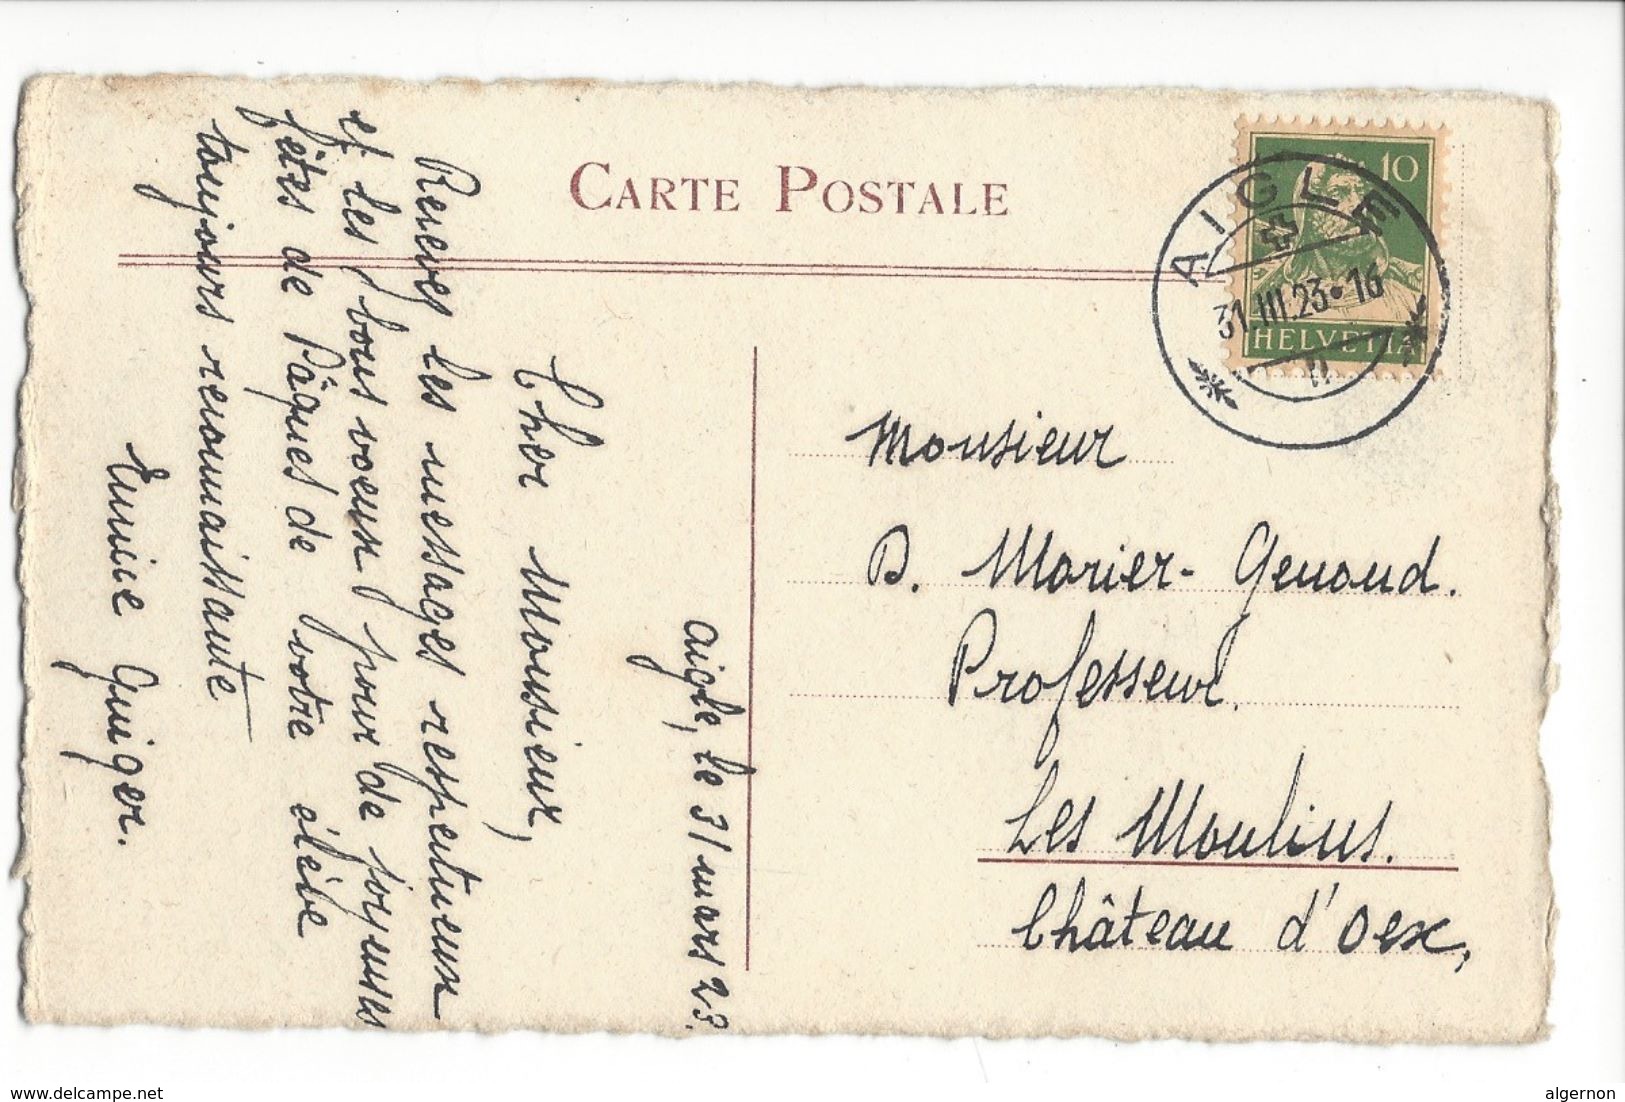 CARTE POSTALE
10
HELVETIA
AIGLE
31.III.23•16
Aigle, le 31 mars 23.
Cher Monsieur,
Recevez les messages respectueux
et les bons voeux pour de joyeuses
fêtes de Pâques de votre élève
toujours reconnaissante
Eunice Guiger.
Monsieur
D. Morier-Genoud.
Professeur.
Les Moulins.
Château d'Oex,
delcampe.net
algernon